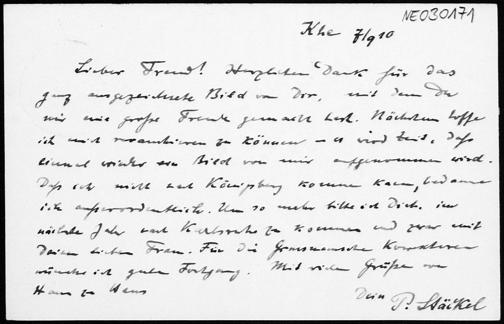 NE030171
Khe 7/9 10
Lieber Freund! Herzlichen Dank für das
ganz ausgezeichnete Bild von Dir, mit dem Du
mir eine große Freude gemacht hast. Nächstens hoffe
ich mich revanchieren zu können – es wird Zeit, daß
einmal wieder ein Bild von mir aufgenommen wird.
Daß ich nicht nach Königsberg kommen kann, bedaure
ich außerordentlich. Um so mehr bitte ich Dich, im
nächsten Jahr nach Karlsruhe zu kommen und zwar mit
Deiner lieben Frau. Für die Grassmannsche Korrekturen
wünsche ich guten Fortgang. Mit vielen Grüßen von
Haus zu Haus
Dein P. Stäckel